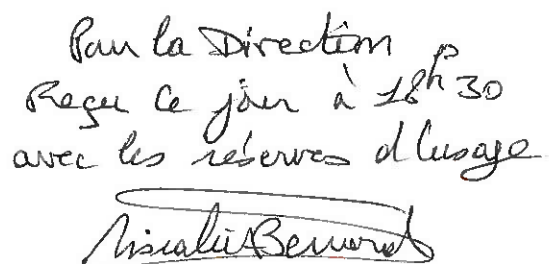 Pour la Direction
Reçu ce jour à 18h30
avec les réserves d'usage
Bernard